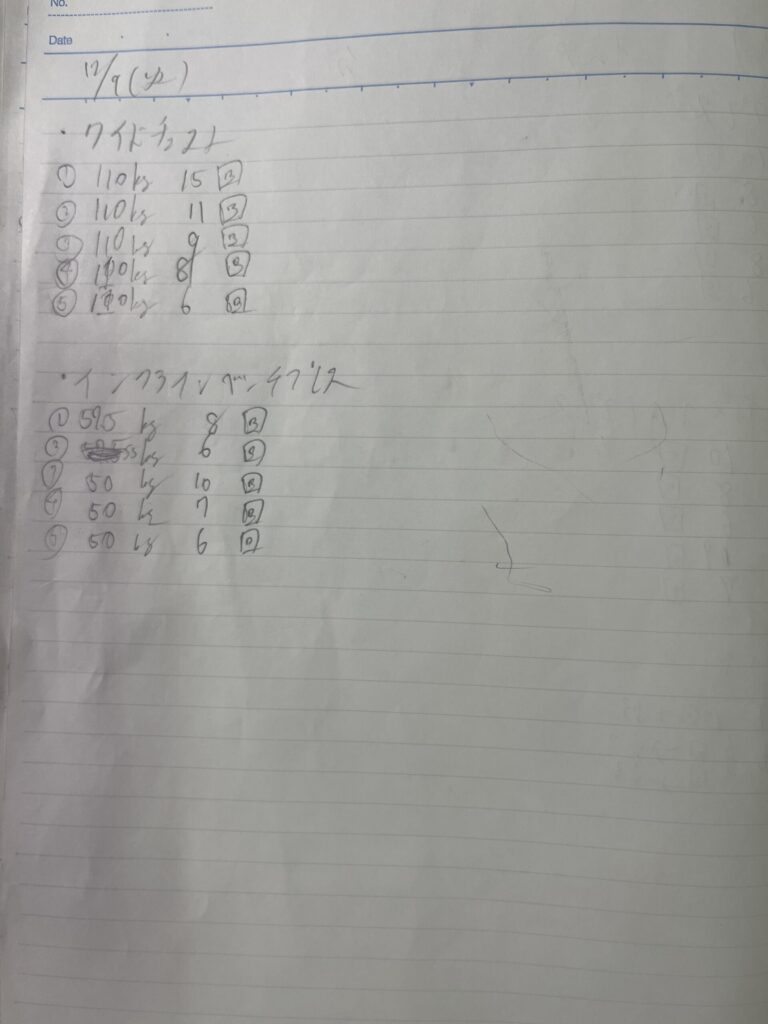 No.
Date
12/9(火)
・ワイドチェスト
① 110kg 15 3
② 110kg 11 3
③ 110kg 9 3
④ 100kg 8 3
⑤ 100kg 6
・インクラインベンチプレス
① 52.5 kg 8 3
② 55kg 6
③ 50 kg 10 3
④ 50 kg 7 3
⑤ 50 kg 6